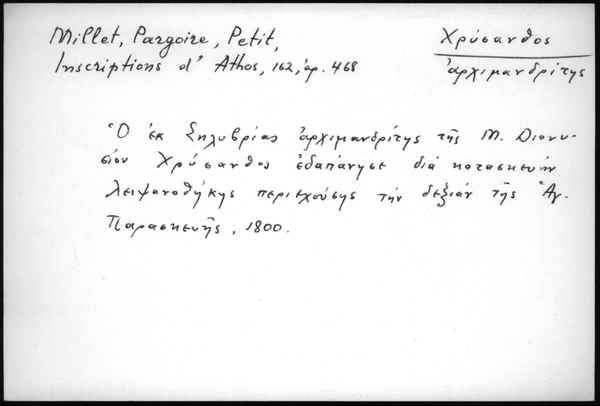 Millet, Pargoire, Petit,
Inscriptions d' Athos, 162, ἀρ. 468
Χρύσανθος
ἀρχιμανδρίτης
Ὁ ἐκ Σηλυβρίας ἀρχιμανδρίτης τῆς Μ. Διονυ-
σίου Χρύσανθος ἐδαπάνησε διά κατασκευήν
λειψανοθήκης περιεχούσης τήν δεξιάν τῆς Ἁγ.
Παρασκευῆς, 1800.